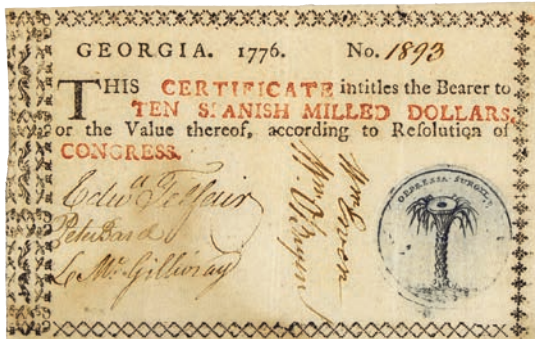 GEORGIA. 1776. No. 1893
THIS CERTIFICATE intitles the Bearer to
TEN SPANISH MILLED DOLLARS,
or the Value thereof, according to Resolution of
CONGRESS.
Edwd Telfair
Wm Ewen
L McGillivray
OPPRESSA SURGIT.